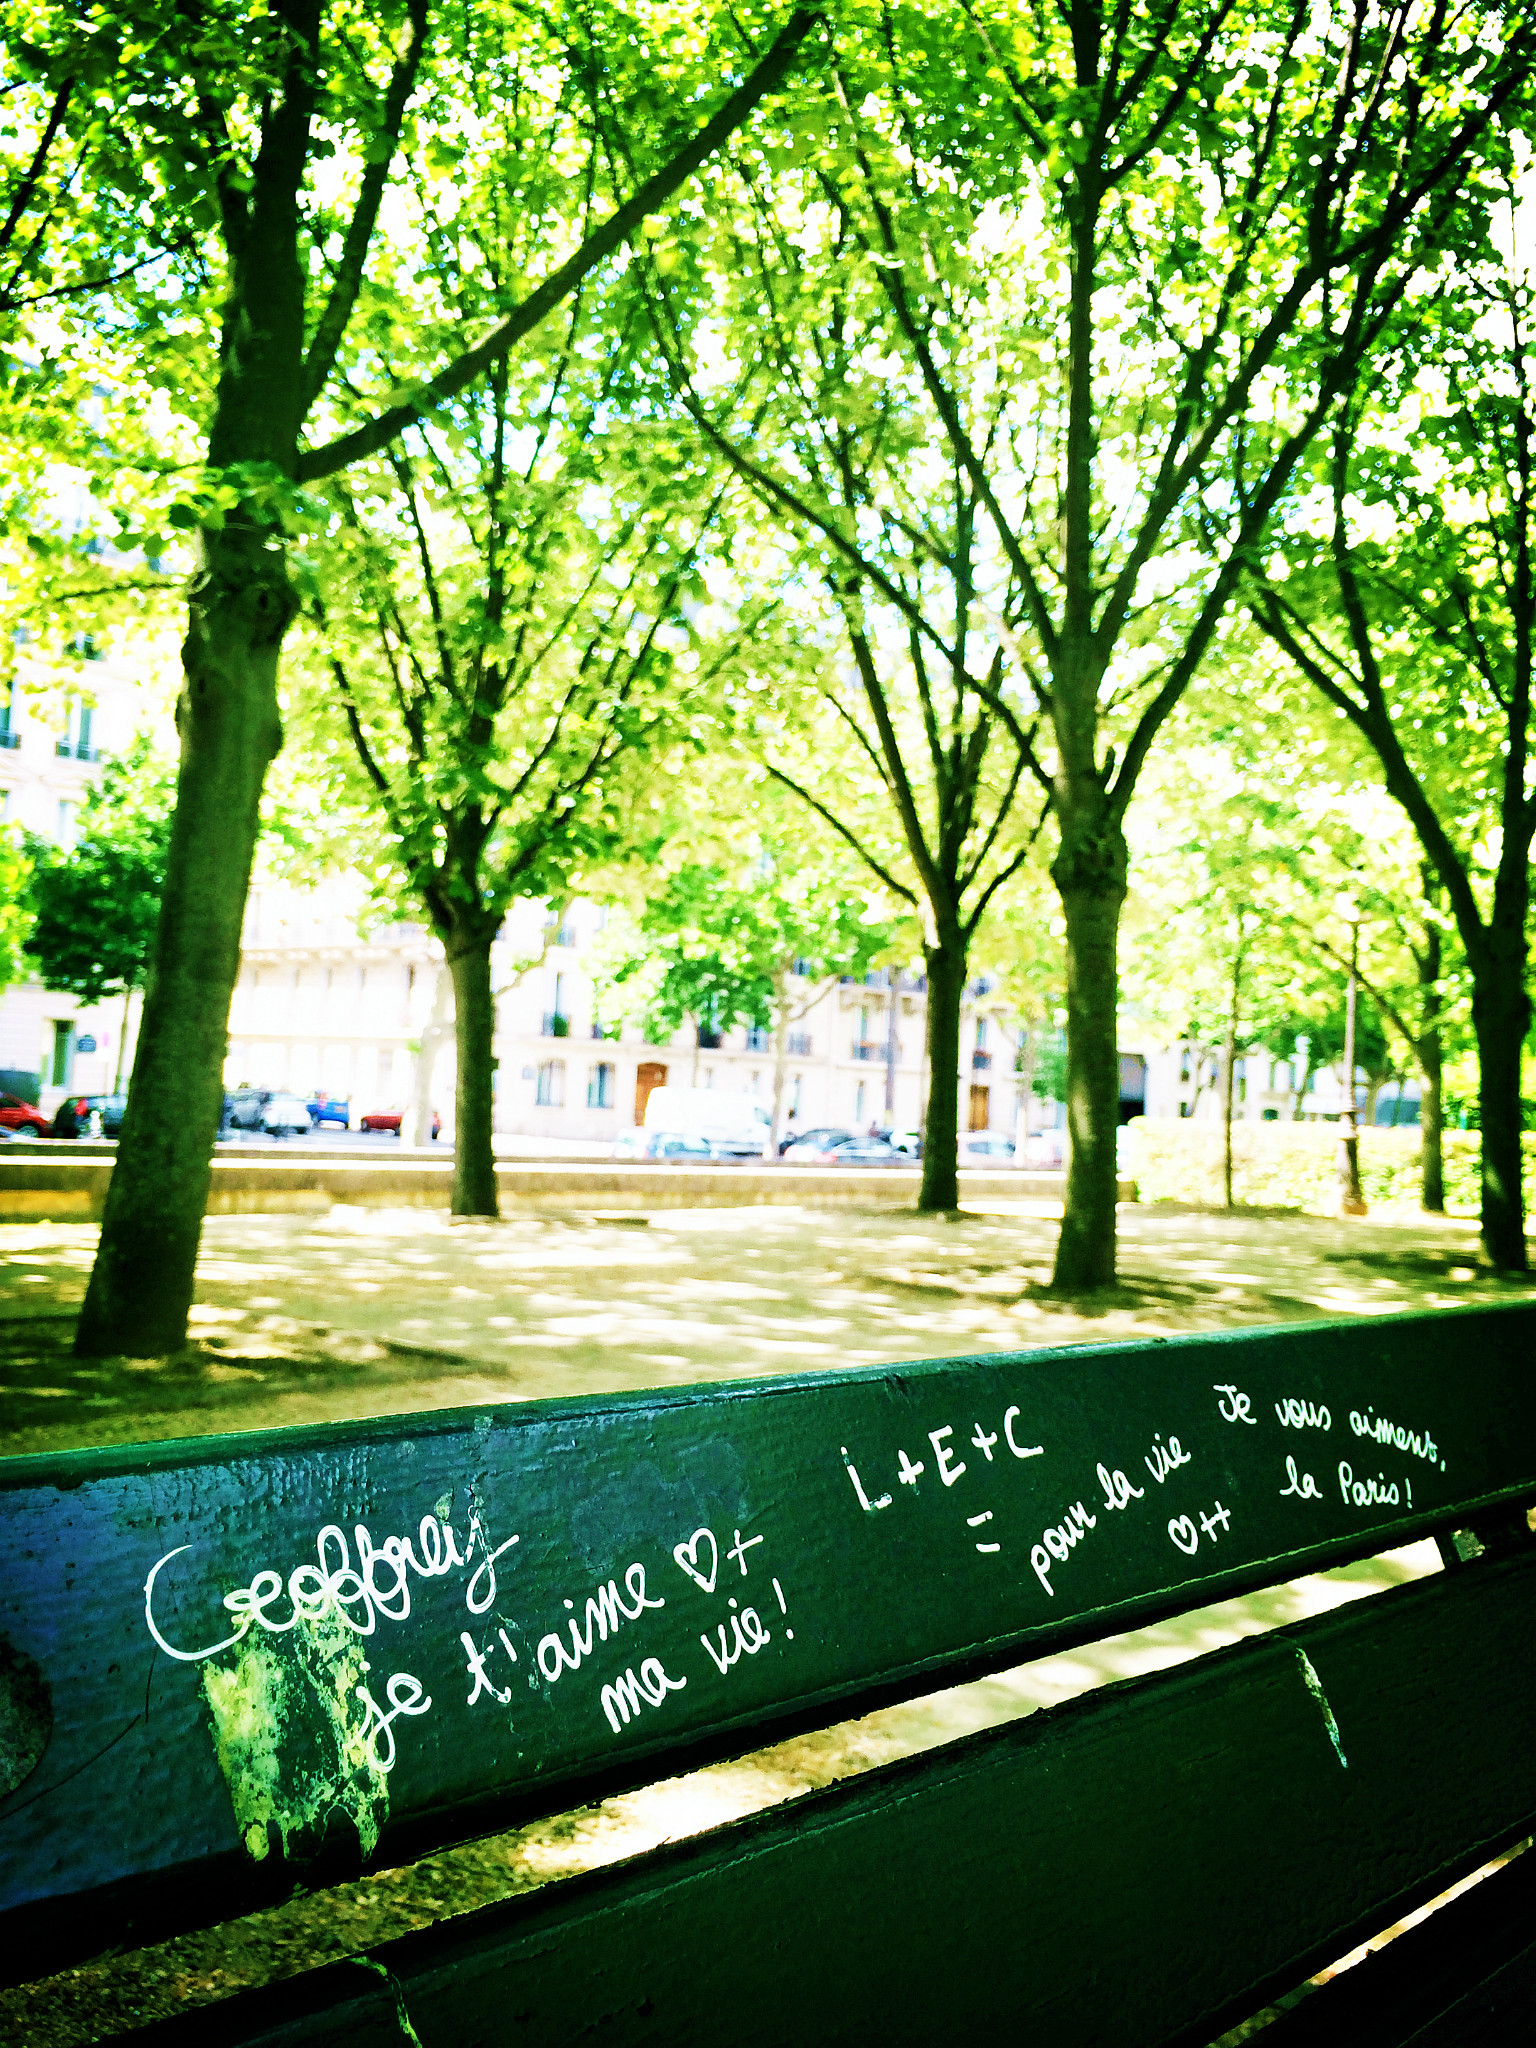 Geoffrey
je t'aime ♡+
ma vie!
L+E+C
=
pour la vie
♡++
Je vous aiment,
la Paris!